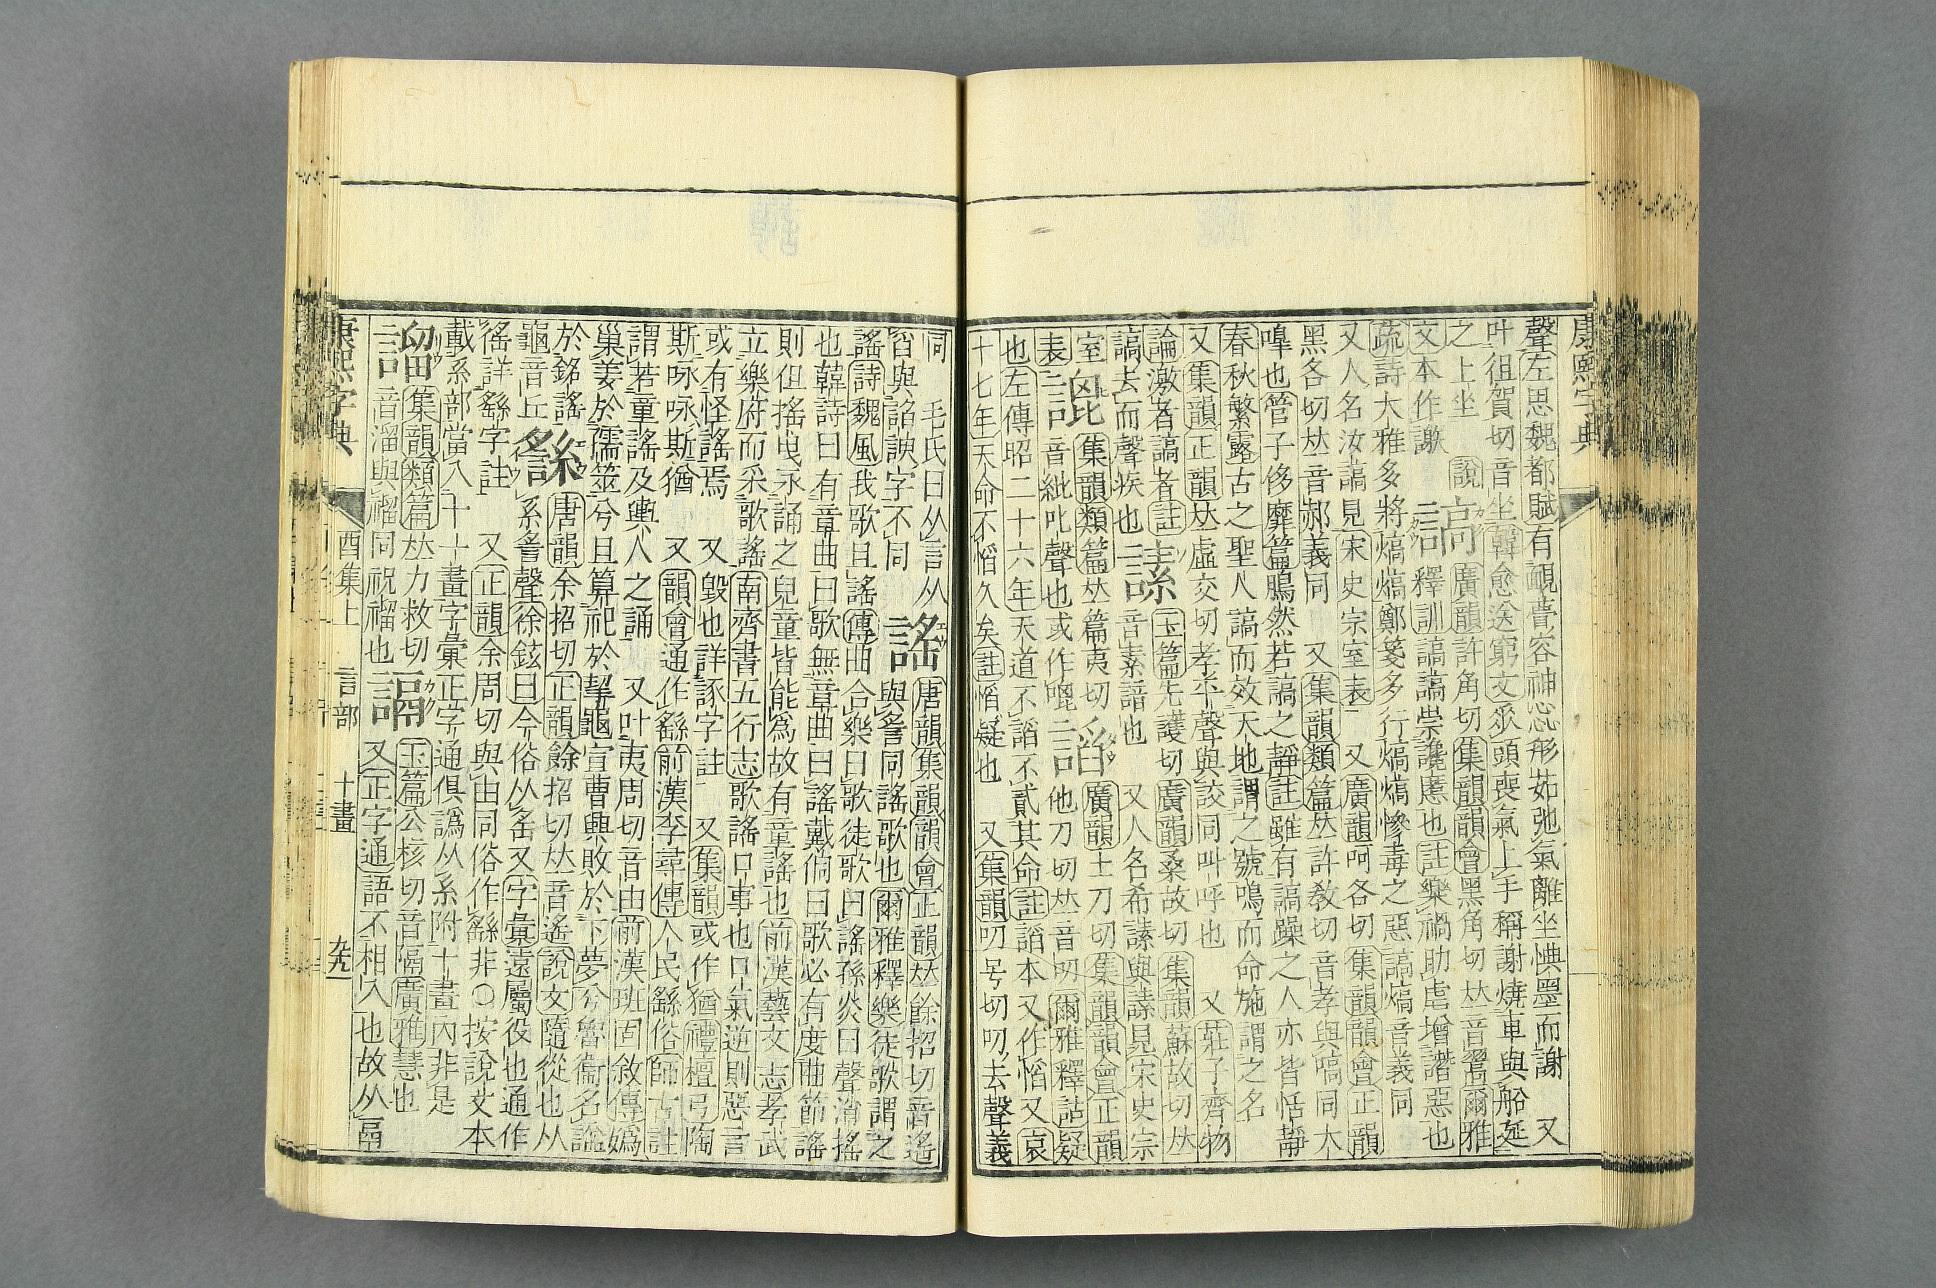 康熙字典
聲左思魏都賦有靦瞢容神惢形茹弛氣離坐懊墨而謝 又
叶徂賀切音坐韓愈送窮文㸚頭喪氣上手稱謝燒車與船延
之上坐 說
文本作𧬄
謞 廣韻許角切集韻韻會黑角切𠀤音㗾爾雅
釋訓謞謞崇讒慝也註樂禍助虐增譖惡也
疏詩大雅多將熇熇鄭箋多行熇熇慘毒之惡謞熇音義同
又人名汝謞見宋史宗室表 又廣韻呵各切集韻韻會正韻
黑各切𠀤音郝義同 又集韻類篇𠀤許敎切音孝與嗃同大
嘷也管子侈靡篇鵰然若謞之靜註雖有謞躁之人亦皆恬靜
春秋繁露古之聖人謞而效天地謂之號鳴而命施謂之名
又集韻正韻𠀤虛交切孝平聲與詨同叫呼也 又莊子齊物
論激者謞者註
謞去而聲疾也
𧪜 玉篇先護切廣韻桑故切集韻蘇故切𠀤
音素譜也 又人名希𧪜與𧪜見宋史宗
室表
𧪫 集韻類篇𠀤篇夷切
音紕吡聲也或作㗑
謟 廣韻土刀切集韻韻會正韻
他刀切𠀤音叨爾雅釋詁疑
也左傳昭二十六年天道不謟不貳其命註謟本又作慆又哀
十七年天命不慆久矣註慆疑也 又集韻叨号切叨去聲義
同 毛氏曰从言从
䍃與諂諛字不同
謠 唐韻集韻韻會正韻𠀤餘招切音遙
與䚻同謠歌也爾雅釋樂徒歌謂之
謠詩魏風我歌且謠傳曲合樂曰歌徒歌曰謠孫炎曰聲消搖
也韓詩曰有章曲曰歌無章曲曰謠戴侗曰歌必有度曲節謠
則但搖曳永誦之兒童皆能爲故有童謠也前漢藝文志孝武
立樂府而采歌謠南齊書五行志歌謠口事也口氣逆則惡言
或有怪謠焉 又毀也詳諑字註 又集韻或作猶禮檀弓陶
斯咏咏斯猶 又韻會通作繇前漢李尋傳人民繇俗師古註
謂若童謠及輿人之誦 又叶夷周切音由前漢班固敘傳嬀
巢姜於孺筮兮且算祀於挈龜宣曹興敗於下夢兮魯衞名諡
於銘謠
龜音丘
䌛 唐韻余招切正韻餘招切𠀤音遙說文隨從也从
系䚻聲徐鉉曰今俗从䍃又字彙遠屬役也通作
徭詳繇字註 又正韻余周切與由同俗作繇非○按說文本
載系部當入十一畫字彙正字通俱譌从糸附十畫內非是
䬟 集韻類篇𠀤力救切
音溜與䄂同祝䄂也
諨 玉篇公核切音隔廣雅慧也
又正字通語不相入也故从鬲
康熙字典 酉集上 言部 十畫